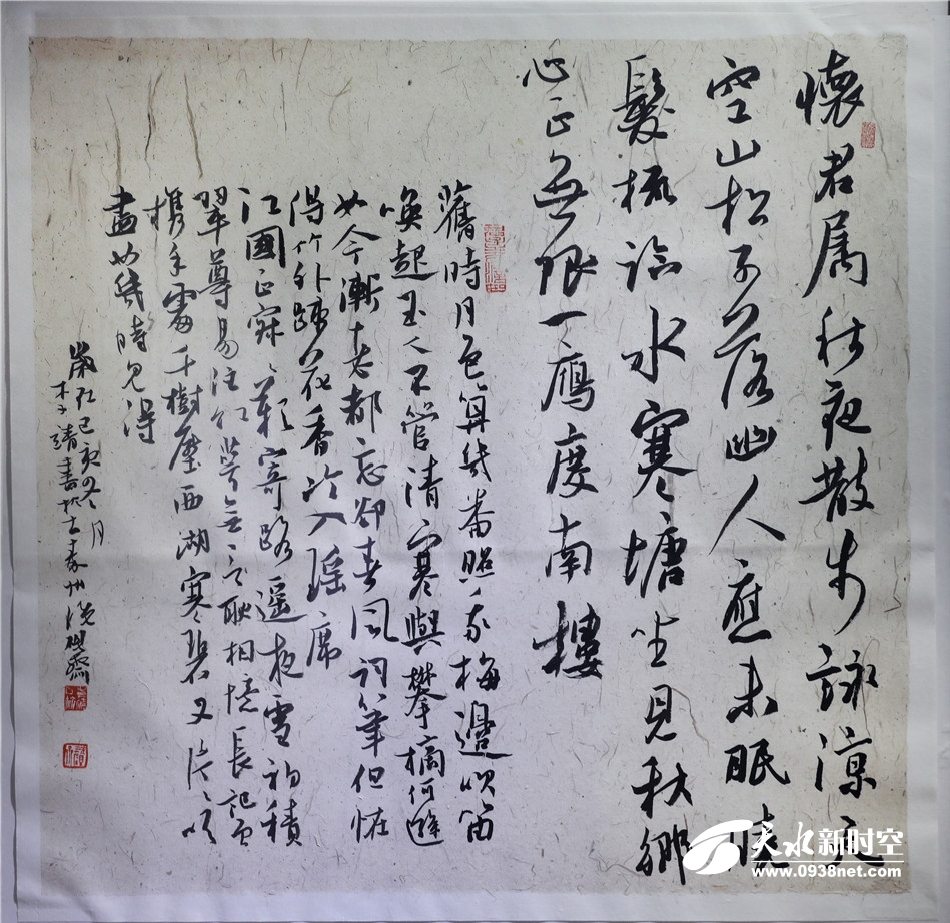 懷君屬秋夜散步詠涼天
空山松子落幽人應未眠曉
髮梳臨水寒塘坐見秋鄉
心正無限一鴈度南樓
舊時月色算幾番照我梅邊吹笛
喚起玉人不管清寒與攀摘何遜
如今漸老都忘卻春風詞筆但怪
得竹外疎花香冷入瑤席
江國正寂寂歎寄路遙夜雪初積
翠尊易泣紅萼無言耿相憶長記曾
攜手處千樹壓西湖寒碧又片片吹
盡也幾時見得
歲在己亥冬月
木子靖書於古秦州洗硯齋
天水新时空
www.0938net.com